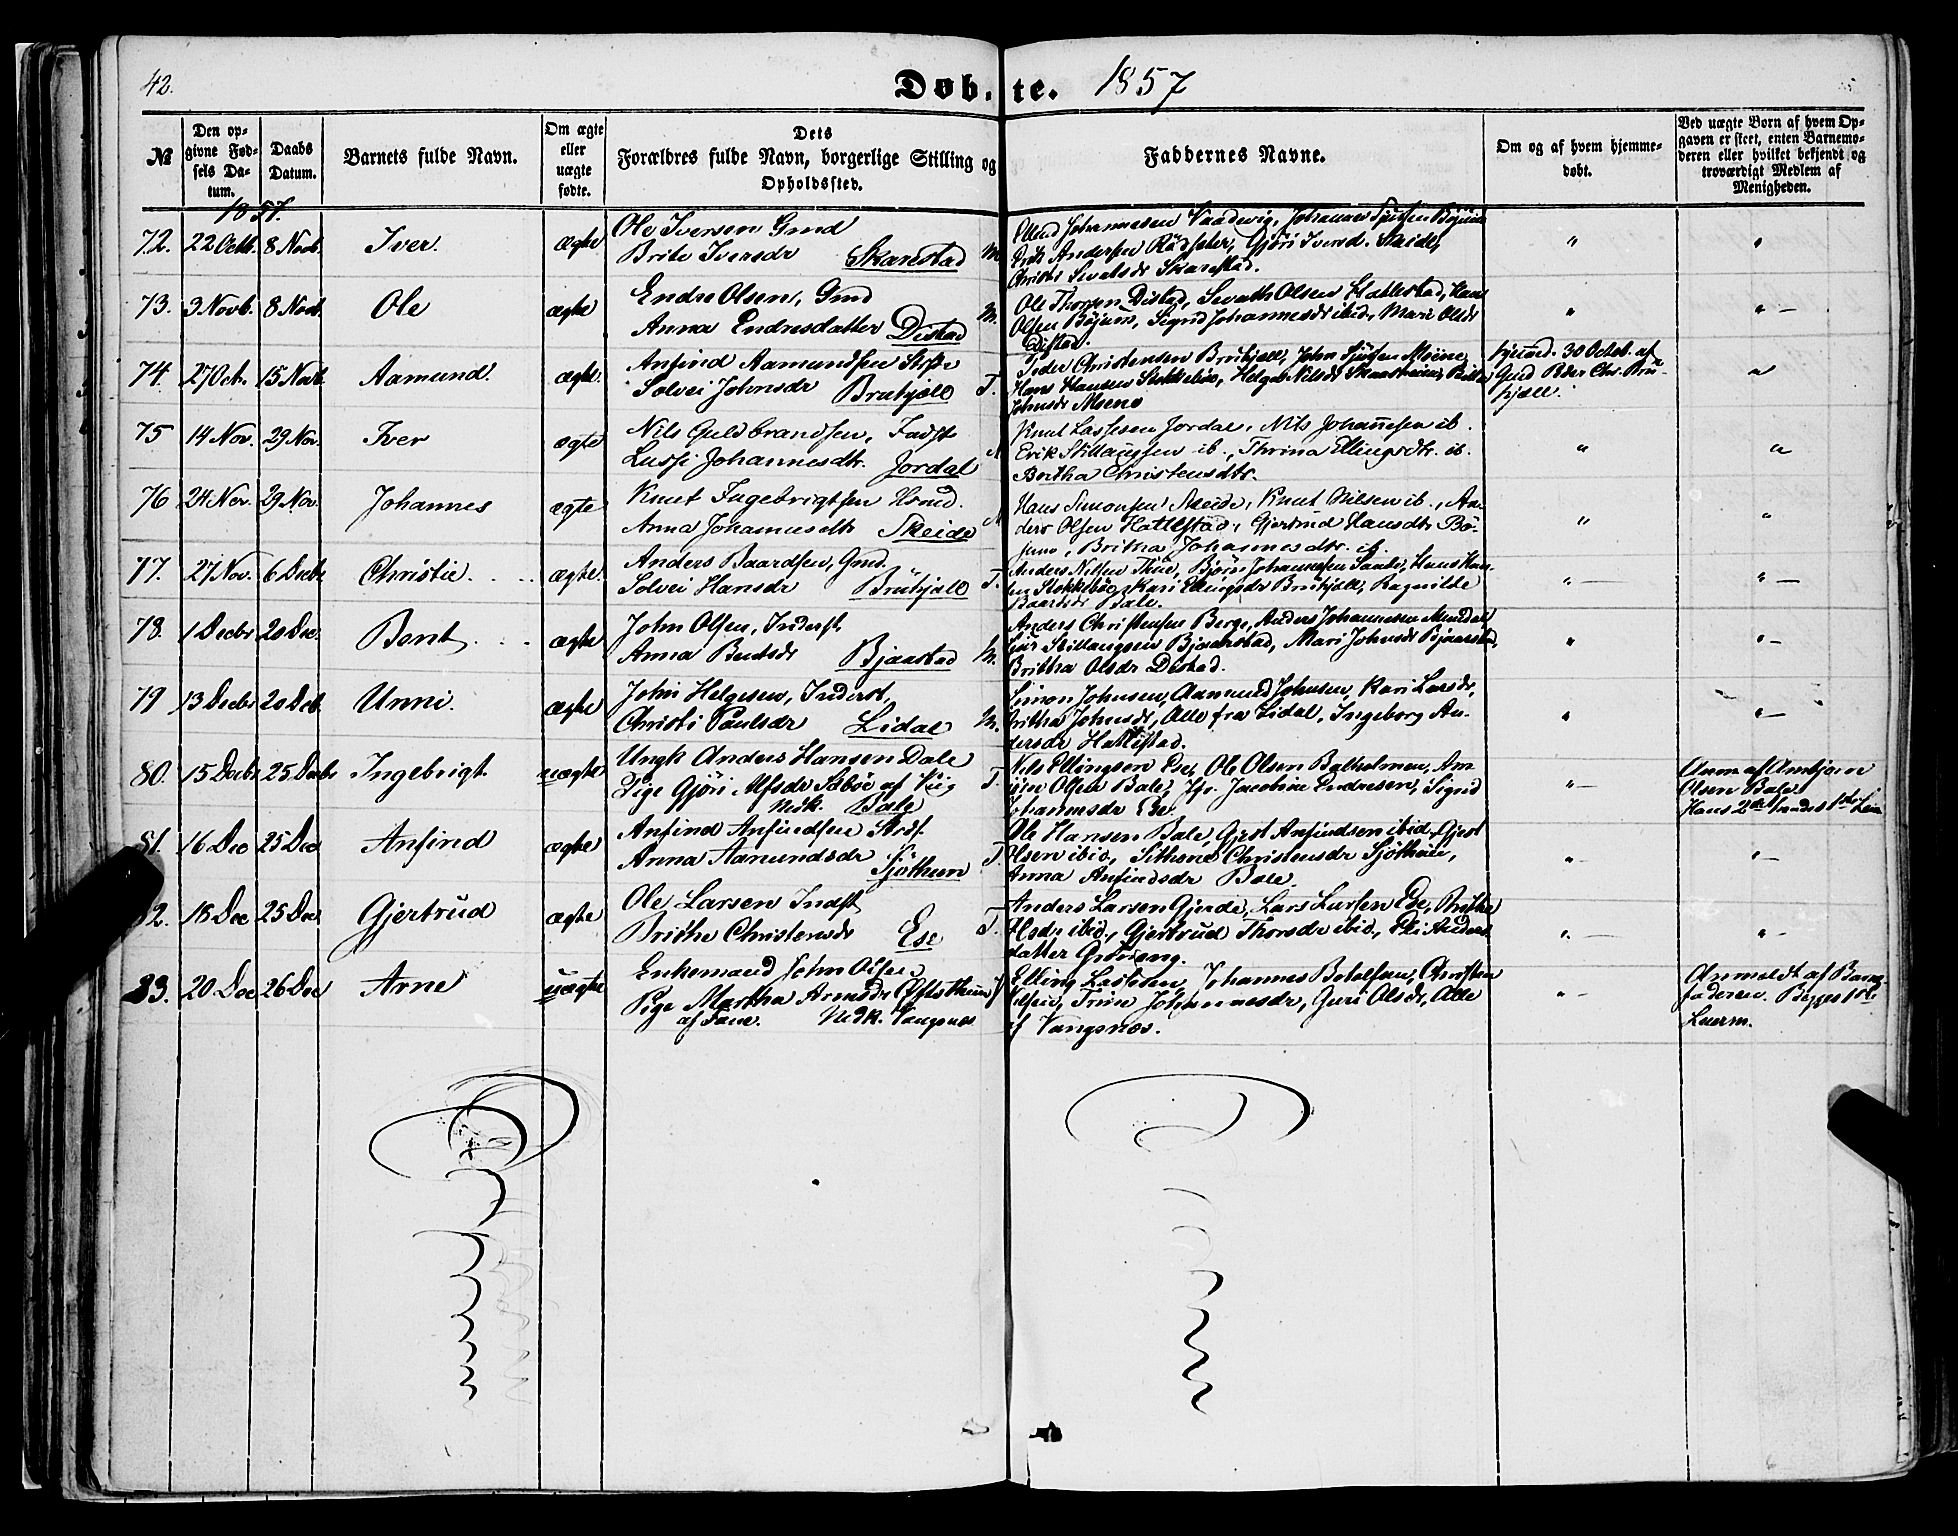 42.
Døbte. 1857
№
Den opgivne Fødsels Datum.
Daabs Datum.
Barnets fulde Navn.
Om ægte eller uægte fødte.
Dets Forældres fulde Navn, borgerlige Stilling og Opholdssted.
Faddernes Navne.
Om og af hvem hjemmedøbt.
Ved uægte Børn af hvem Opgaven er skeet, enten Barnemoderen eller hvilket bekjendt og troværdigt Medlem af Menigheden.
1857.
72. 22 Octb. 8 Novb. Iver. ægte
Ole Iversen Gmd
Brite Iversdr Skarestad M
Ellend Johannessen Vaadevig, Johannes Sjursen Bøyum
Erik Andersen Rødseter, Gjøri Iversd. Skeide,
Christi Sevatsdr Skarestad.
" "
73. 3 Novb. 8 Novb. Ole ægte
Endre Olsen, Gmd
Anna Endresdatter Distad M.
Ole Thorsen Distad, Sevath Olsen Hatlestad, Hans
Olsen Bøjum, Sigrid Johannesdr ibid, Mari Olsdr
Distad.
" " -
74. 27 Oct. 15 Novb. Aamund. ægte.
Anfind Aamundsen
Solvei Johnsdr Bruhjell T.
Peder Christensen Bruhjell, John Sjursen
Hans Hansen Stokkebøe, Helge Nilsdr
Johnsdr
hjemmed. 30 Octob. af
Gmd Peder Chr. Bruhjell.
"
75 14 Nov. 29 Nov. Iver ægte
Nils Guldbrandsen, Fadst
Lussi Johannesdtr. Jordal M
Knut Lassesen Jordal, Nils Johannesen ib.
Erik Stillaugsen ib., Thrina Ellingsdtr. ib.
Bertha Christensdtr.
" "
76 24 Nov. 29 Nov. Johannes ægte
Knut Ingebrigtsen Hsmd.
Anna Johannesdtr Skeide M
Hans Simonsen Skeide, Knut Nilsen ib., Anders
Olsen Hatlestad, Gjertrud Hansdtr. Bøjum,
Britha Johannesdtr. ib.
" "
77. 27 Nov. 6 Decb Christie. . . . ægte.
Anders Baardsen, Gmd.
Solvei Hansdr Bruhjell T.
Anders Nilsen Thue, Bjørn Johannesen, Hans Hansen
Stokkebøe, Kari Ellingsdr Bruhjell, Ragnilde
Baardsdr Bale.
" - " -
78. 1 Decbr 20 Dec. Bent . . . ægte
John Olsen, Inderst,
Anna Bentsdr Bjaastad M.
Anders Christensen Berge, Anders Johannessen Mundal
Stillaugsen Bjaastad, Mari Johnsdr Bjaastad,
Britha Olsdr Distad.
" " -
79 13 Decbr 20 Decb. Unni. ægte
John Helgesen, Inderst,
Christi Paulsdr Lidal M.
Simon Johnsen, Aamund Johnsen, Kari Larsdr,
Britha Johnsdr, Alle fra Lidal, Ingeborg Andersdr
Hatlestad.
" " -
80. 15 Decbr 25 Decbr Ingebrigt uægte
Ungk Anders Hansen Dale
Pige Gjøri Alfsdr Sæbøe af Viig
Nedk. Bale T.
Nils Ellingsen Ese, Ole Olsen Balholmen,
Olsen Bale, Jfr. Jacobine Endresen, Sigrid
Johannesdr Ese.
" -
Anm af
Olsen Bale.
Hans 2de hendes 1ste Leierm
81. 16 Dec 25 Dec Anfind ægte
Anfind Anfindsen
Anna Aamundsdr Sjøthun T.
Ole Hansen Bale, Gjest Anfindsen ibid, Gjest
Olsen ibid, Christensdr Sjøthun,
Anna Anfindsdr Bale.
" - " -
82. 18 Dec 25 Dec Gjertrud ægte
Ole Larsen Indst
Brithe Christensdr Ese T.
Anders Larsen Gjerde, Lars Larsen Ese, Brithe
Olsdr ibid., Gjertrud Thorsdr ibid., Eli Andersdatter
" - " -
83. 20 Dec 26 Dec Arne uægte
Enkemand John Olsen
Pige Martha Arnesdr
Nedk. Vangsnes
Elling Lassesen, Johannes Botolfsen, Christen
Trine Johannesdr, Guri Olsdr, Alle
af Vangsnes.
" -
Anmeldt af Barnefaderen.
Begges 1ste
Leierm.